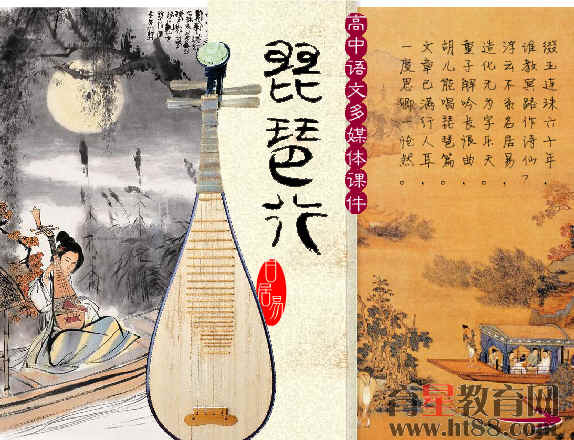 琵琶行
白居易
高中语文多媒体课件
缀玉连珠六十年
谁教冥路作诗仙?
浮云不系名居易
造化无为字乐天
童子解吟长恨曲
胡儿能唱琵琶篇
文章已满行人耳
一度思卿一怆然。
育星教育网
www.ht88.com